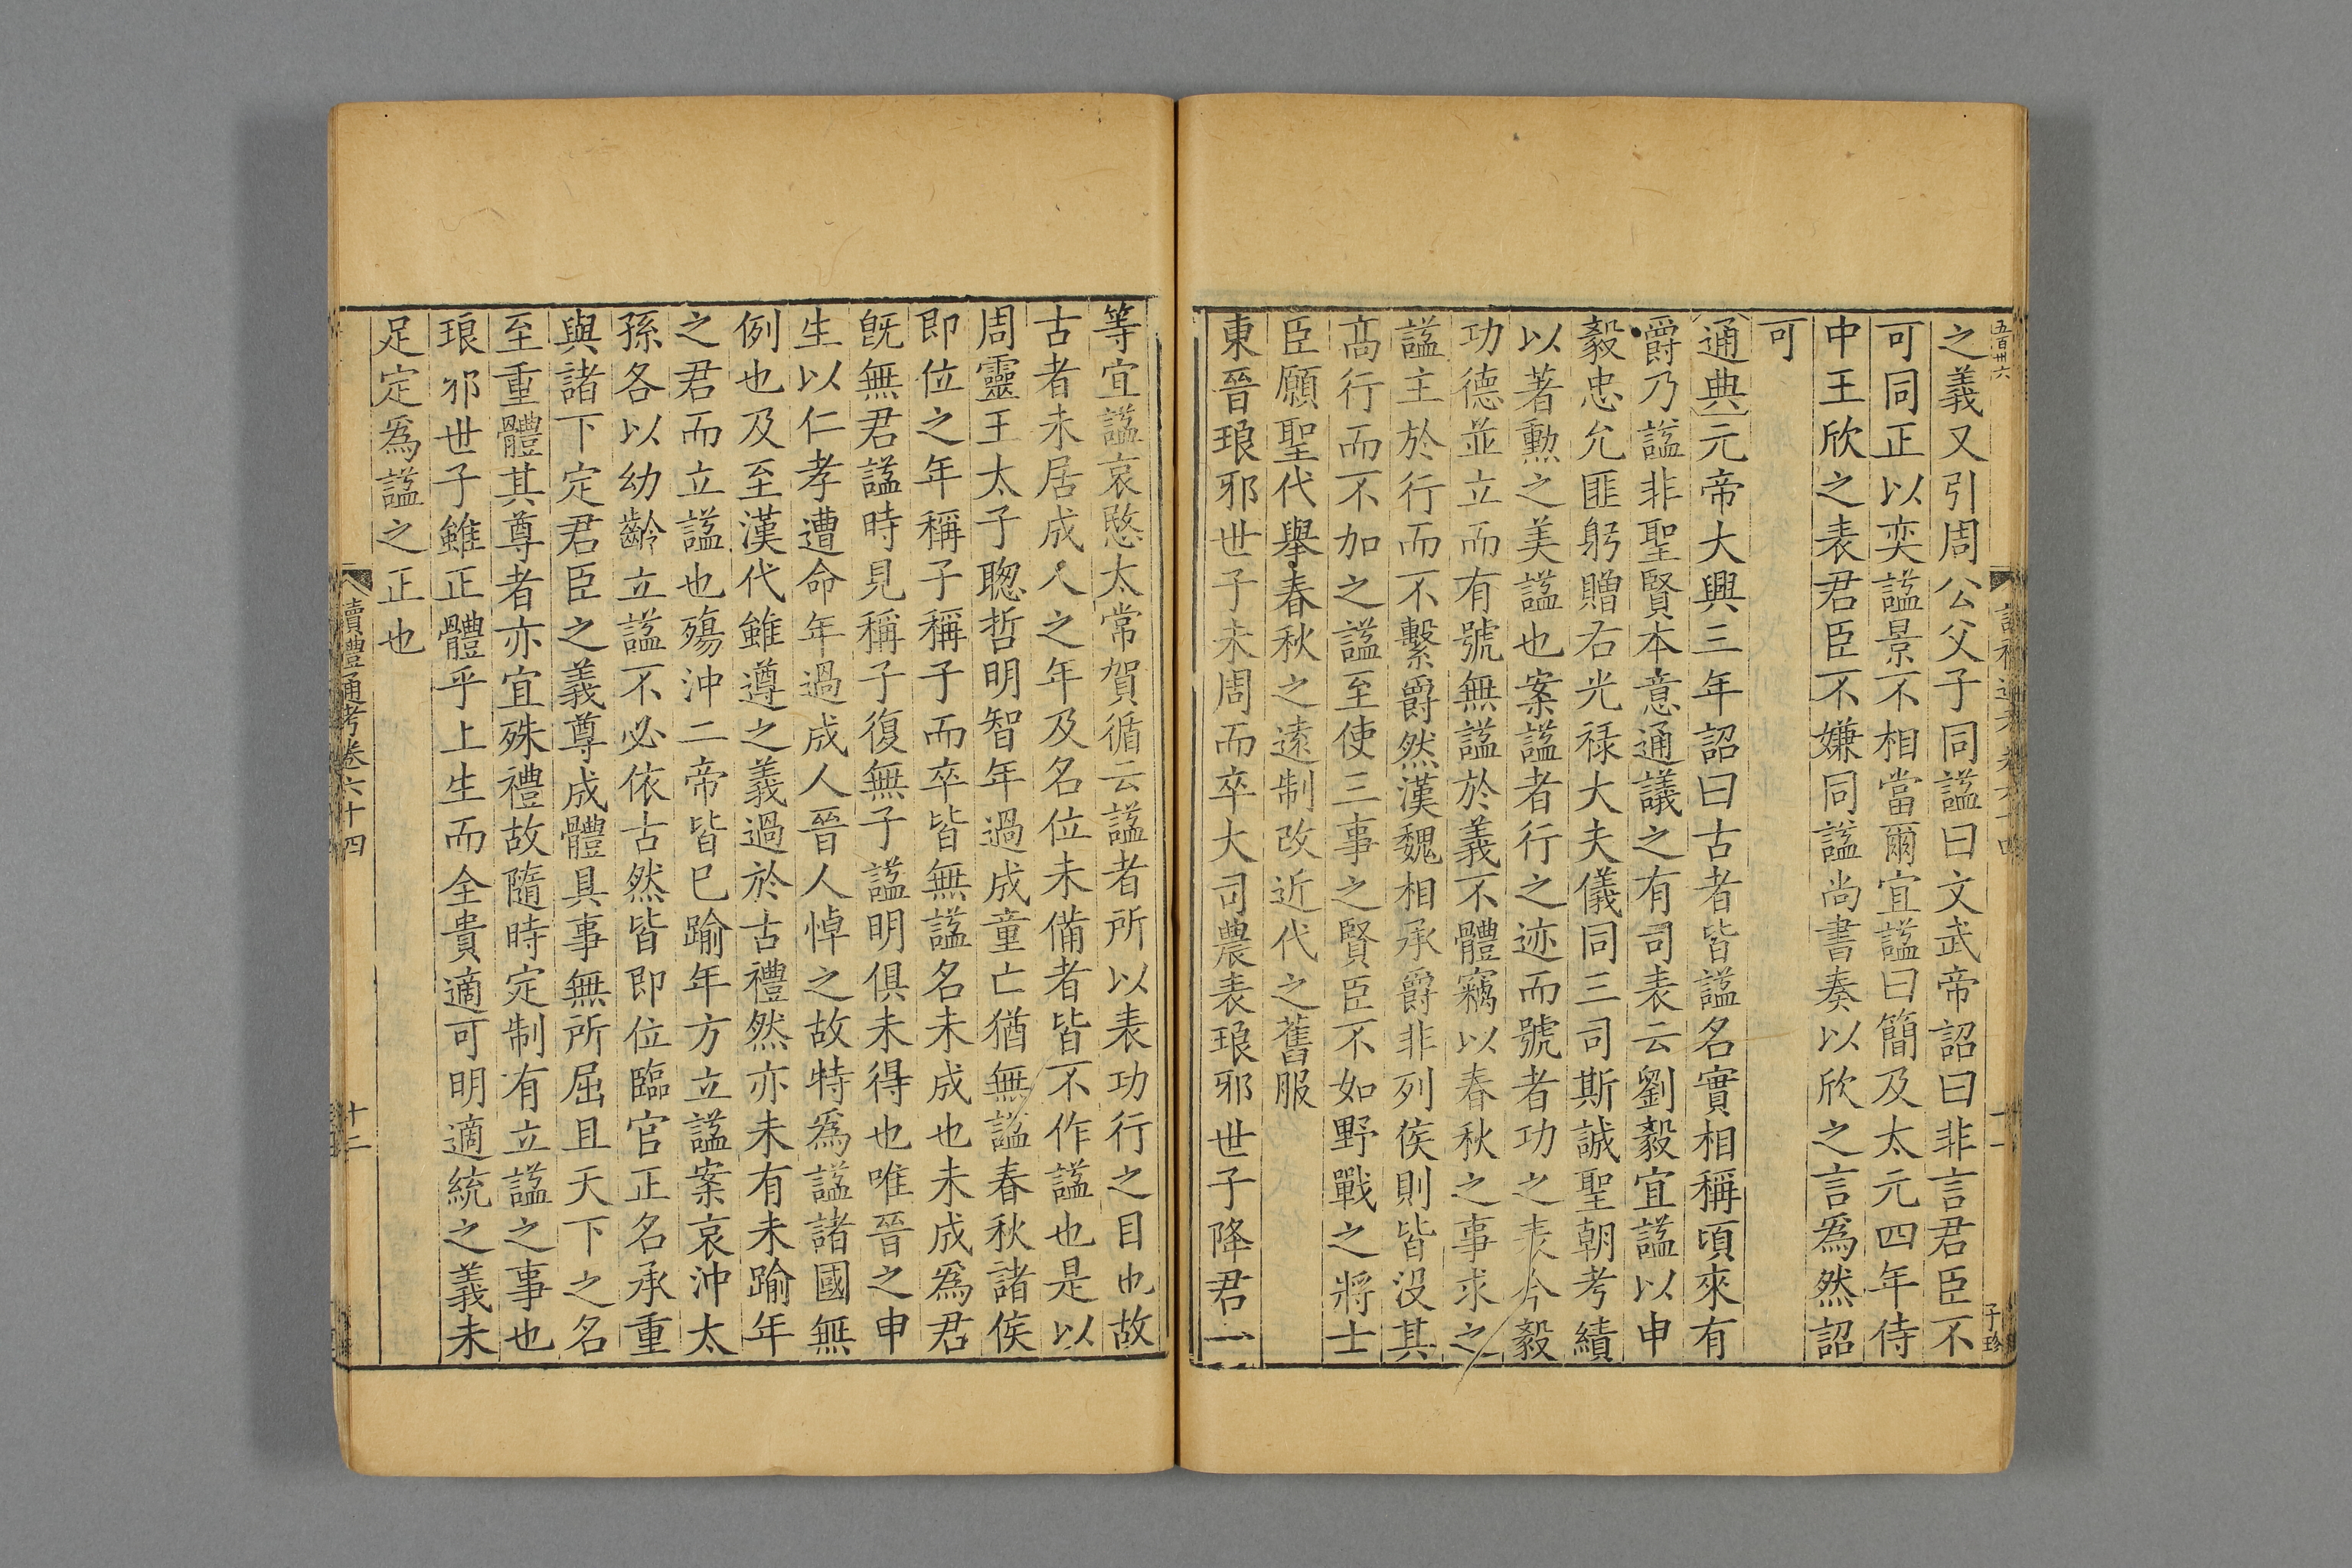 五百卅六
之義又引周公父子同諡曰文武帝詔曰非言君臣不
可同正以奕諡景不相當爾宜諡曰簡及太元四年侍
中王欣之表君臣不嫌同諡尚書奏以欣之言爲然詔
可
通典元帝大興三年詔曰古者皆諡名實相稱頃來有
爵乃諡非聖賢本意通議之有司表云劉毅宜諡以申
毅忠允匪躬贈右光禄大夫儀同三司斯誠聖朝考績
以著勲之美諡也案諡者行之迹而號者功之表今毅
功德並立而有號無諡於義不體竊以春秋之事求之
諡主於行而不繫爵然漢魏相承爵非列侯則皆没其
高行而不加之諡至使三事之賢臣不如野戰之將士
臣願聖代舉春秋之遠制改近代之舊服
東晉琅邪世子未周而卒大司農表琅邪世子降君一
十一
子珍
等宜諡哀愍太常賀循云諡者所以表功行之目也故
古者未居成人之年及名位未備者皆不作諡也是以
周靈王太子聰哲明智年過成童亡猶無諡春秋諸侯
即位之年稱子稱子而卒皆無諡名未成也未成爲君
旣無君諡時見稱子復無子諡明俱未得也唯晉之申
生以仁孝遭命年過成人晉人悼之故特爲諡諸國無
例也及至漢代雖遵之義過於古禮然亦未有未踰年
之君而立諡也殤沖二帝皆巳踰年方立諡案哀沖太
孫各以幼齡立諡不必依古然皆即位臨官正名承重
與諸下定君臣之義尊成體具事無所屈且天下之名
至重體其尊者亦宜殊禮故隨時定制有立諡之事也
琅邪世子雖正體乎上生而全貴適可明適統之義未
足定爲諡之正也
讀禮通考卷六十四
十二